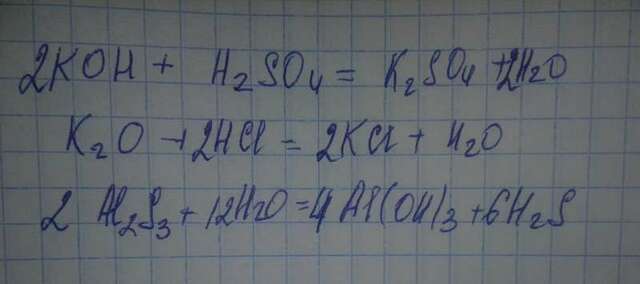 2KOH + H₂SO₄ = K₂SO₄ + 2H₂O
K₂O + 2HCl = 2KCl + H₂O
2 Al₂S₃ + 12H₂O = 4Al(OH)₃ + 6H₂S